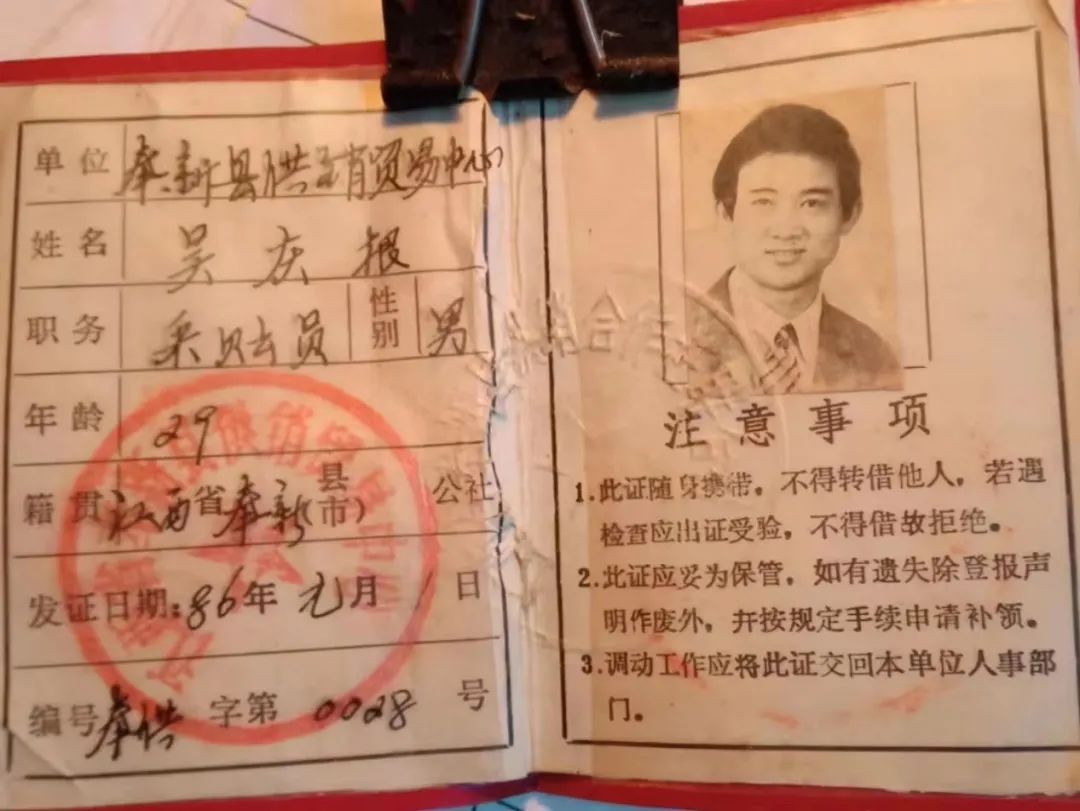 单位 奉新县供销贸易中心
姓名 吴庆根
职务 采购员 性别 男
年龄 29
籍贯 江西省奉新县(市) 公社
发证日期:86年元月1日
编号奉供字第0028号
江西省奉新县供销贸易中心
注意事项
1.此证随身携带，不得转借他人，若遇
检查应出证受验，不得借故拒绝。
2.此证应妥为保管，如有遗失除登报声
明作废外，并按规定手续申请补领。
3.调动工作应将此证交回本单位人事部
门。